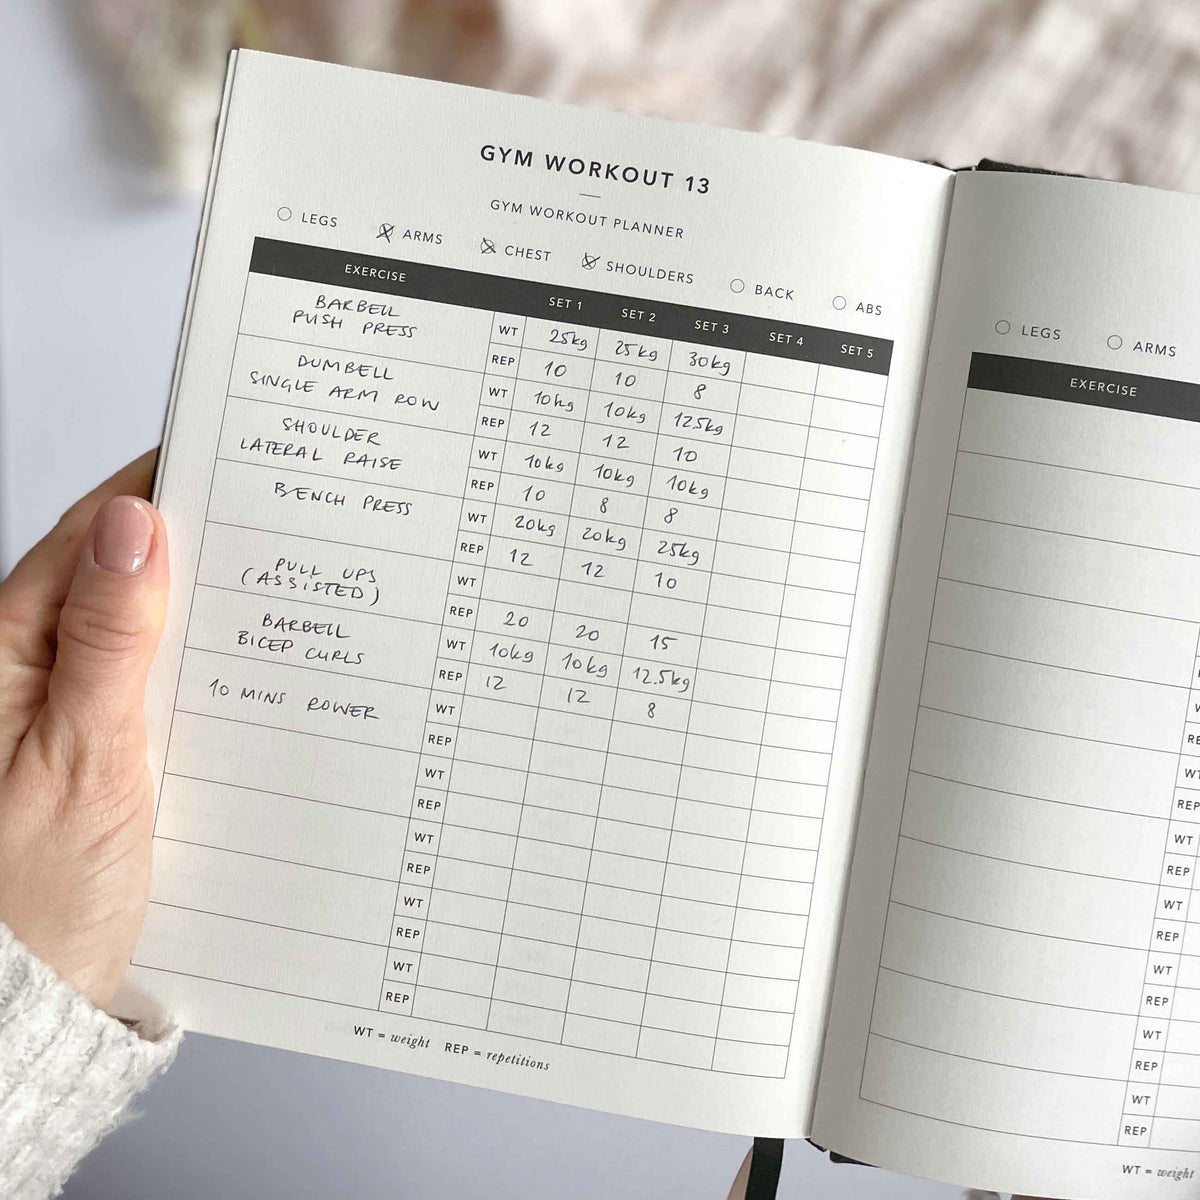 GYM WORKOUT 13
GYM WORKOUT PLANNER
LEGS ARMS CHEST SHOULDERS BACK ABS
EXERCISE SET 1 SET 2 SET 3 SET 4 SET 5
BARBELL
PUSH PRESS
WT 25kg 25kg 30kg
REP 10 10 8
DUMBELL
SINGLE ARM ROW
WT 10kg 10kg 12.5kg
REP 12 12 10
SHOULDER
LATERAL RAISE
WT 10kg 10kg 10kg
REP 10 8 8
BENCH PRESS
WT 20kg 20kg 25kg
REP 12 12 10
PULL UPS
(ASSISTED)
WT
REP 20 20 15
BARBELL
BICEP CURLS
WT 10kg 10kg 12.5kg
REP 12 12 8
10 MINS ROWER
WT
REP
WT
REP
WT
REP
WT
REP
WT
REP
WT = weight REP = repetitions
LEGS ARMS
EXERCISE
RE
WT
REP
WT
REP
WT
REP
WT
REP
WT
REP
WT
REP
WT = weight